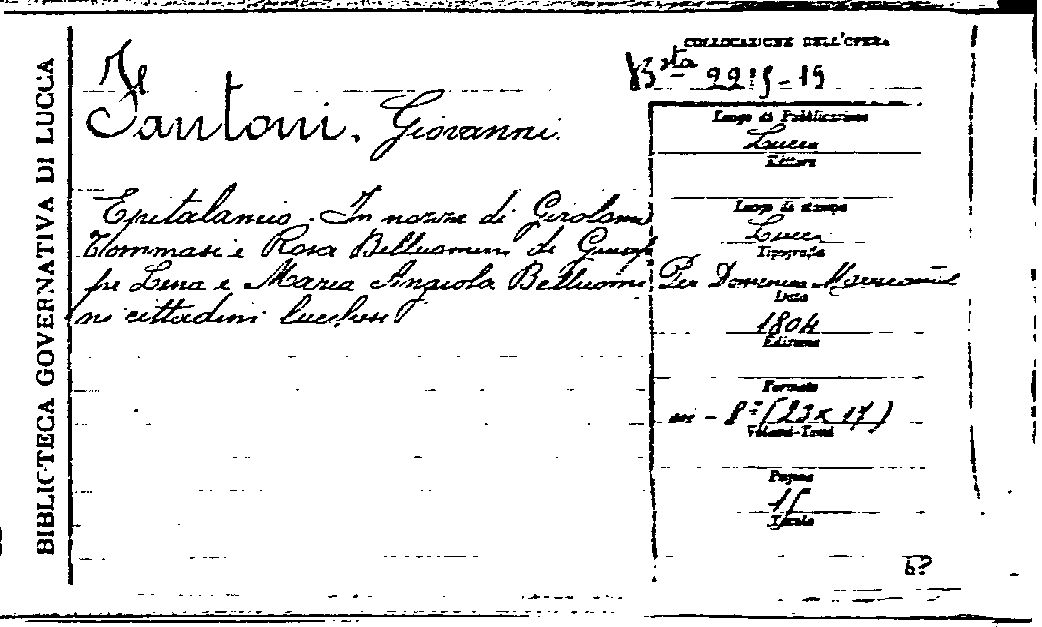 BIBLIOTECA GOVERNATIVA DI LUCCA
COLLOCAZIONE DELL'OPERA
Bsta 2215-19
Fantoni, Giovanni.
Luogo di Pubblicazione
Lucca
Editore
Epitalamio. In nozze di Girolamo
Tommasi e Rosa Belluomini di Giusep
pe Lena e Maria Angiola Belluomi
ni cittadini lucchesi
Luogo di stampa
Lucca
Tipografia
Per Domenico
Data
1804
Edizione
Formato
in - 8° (23 x 17)
Volumi-Tomi
Pagine
15